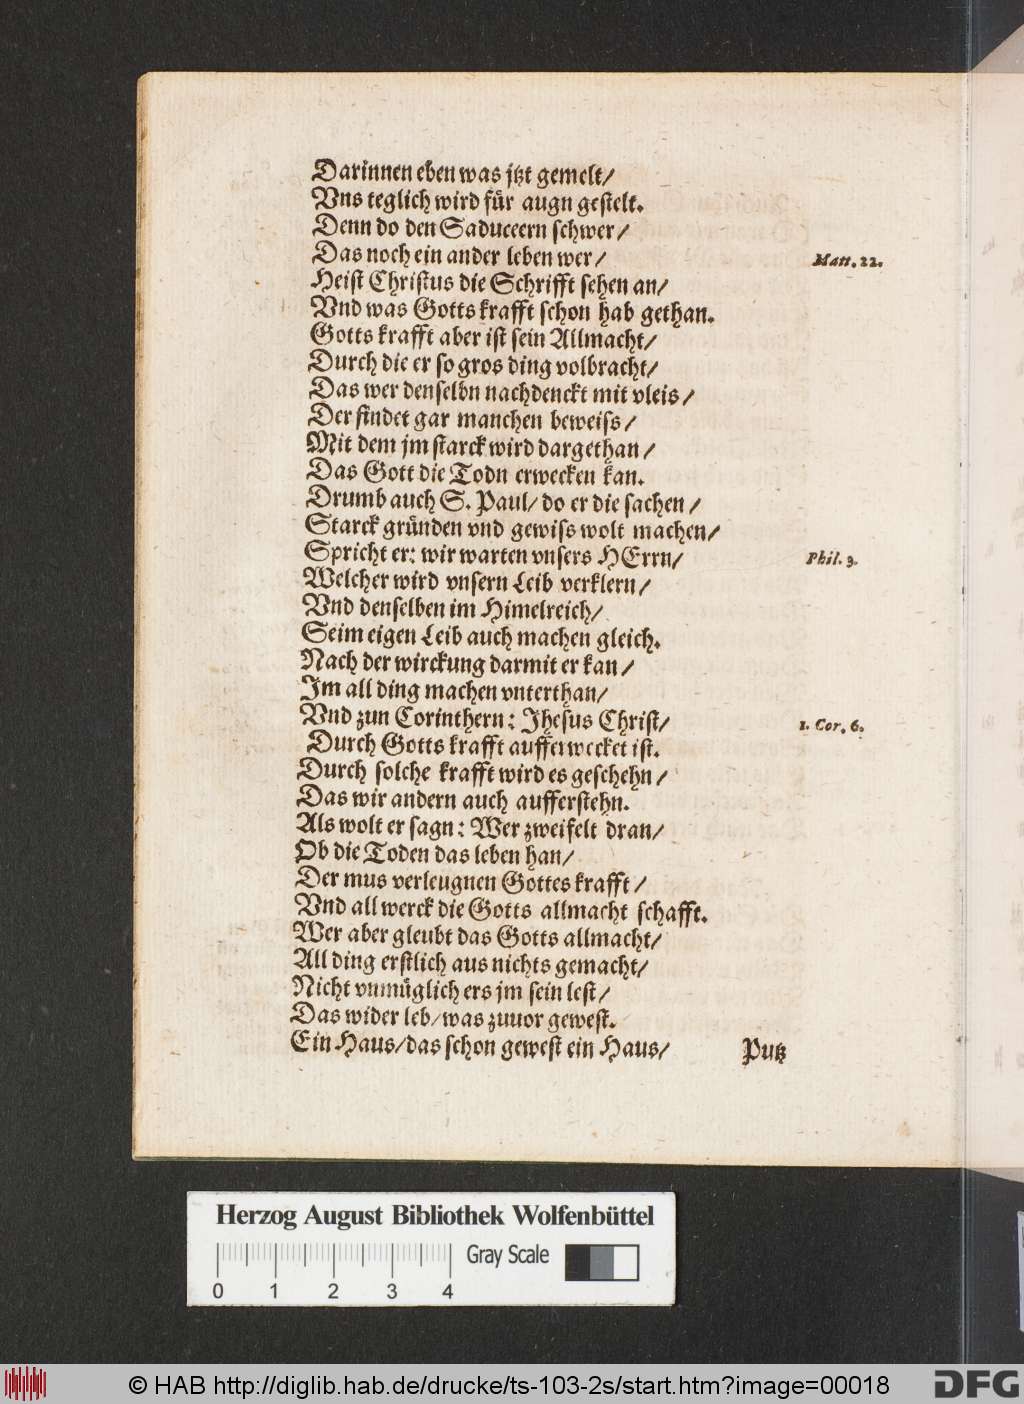 Darinnen eben was jtzt gemelt/
Vns teglich wird für augn gestelt.
Denn do den Saduceern schwer/
Das noch ein ander leben wer/
Matt. 22.
Heist Christus die Schrifft sehen an/
Vnd was Gotts krafft schon hab gethan.
Gotts krafft aber ist sein Allmacht/
Durch die er so gros ding volbracht/
Das wer denselbn nachdenckt mit vleis/
Der findet gar manchen beweiss/
Mit dem jm starck wird dargethan/
Das Gott die Todn erwecken kan.
Drumb auch S. Paul/ do er die sachen/
Starck gründen vnd gewiss wolt machen/
Spricht er: wir warten vnsers HErrn/
Phil. 3.
Welcher wird vnsern Leib verklern/
Vnd denselben im Himelreich/
Seim eigen Leib auch machen gleich.
Nach der wirckung darmit er kan/
Im all ding machen vnterthan/
Vnd zun Corinthern: Jhesus Christ/
1. Cor. 6.
Durch Gotts krafft aufferwecket ist.
Durch solche krafft wird es geschehn/
Das wir andern auch aufferstehn.
Als wolt er sagn: Wer zweifelt dran/
Ob die Toden das leben han/
Der mus verleugnen Gottes krafft/
Vnd all werck die Gotts allmacht schafft.
Wer aber gleubt das Gotts allmacht/
All ding erstlich aus nichts gemacht/
Nicht vnmüglich ers jm sein lest/
Das wider leb/ was zuuor gewest.
Ein Haus/ das schon gewest ein Haus/
Putz
Herzog August Bibliothek Wolfenbüttel
Gray Scale
0 1 2 3 4
© HAB http://diglib.hab.de/drucke/ts-103-2s/start.htm?image=00018
DFG